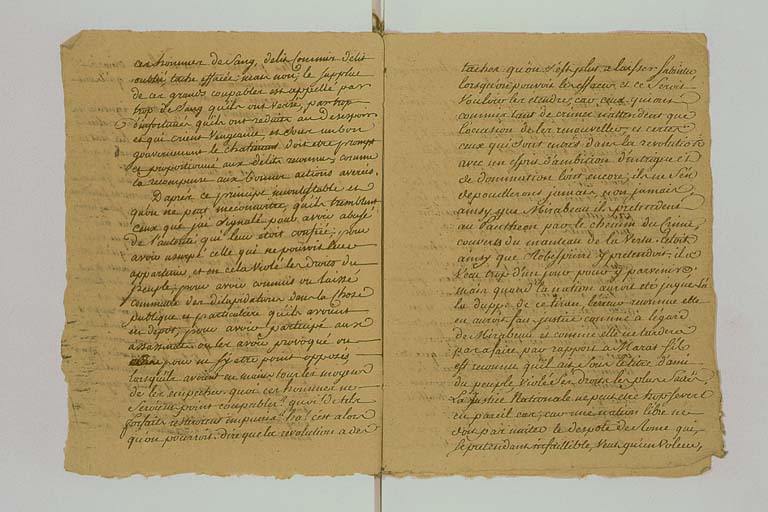 ces hommes de Sang, de les Commis de les
oublié, tache effacée; mais non, le Supplice
de ces grands coupables est appellé par
trop de Sang qu'ils ont versé, par trop
d'infortunés qu'ils ont réduits au desespoir
et qui crient Vengeance, et Sous un bon
gouvernement le chatiment doit etre prompt
et proportionné aux délits reconnus, comme
la recompense aux bonnes actions averées.
D'apres ce principe incontestable et
qu'on ne peut meconnoitre, qu'ils tremblent
ceux que j'ai Signalé pour avoir abusé
de l'autorité qui leur étoit confiée, pour
avoir usurpé celle qui ne pouvoit leur
appartenir, et en cela Violé les droits du
peuple, pour avoir commis ou laissé
commettre des dilapidations dans la Chose
publique et particuliere qu'ils avoient
en depot, pour avoir participé aux
assassinats ou les avoir provoqué ou
pour ne S'y etre point opposés
lorsqu'ils avoient en main tous les moyens
de les empecher, quoi ces hommes ne
Seroient point coupables? quoi! de tels
forfaits resteroient impunis? ha! c'est alors
qu'on pourroit dire que la révolution a des
taches qu'on S'est plus a laisser Subsister
lorsqu'on pouvoit les effacer et ce Seroit
Vouloir les étendre, car ceux qui ont
commis tant de crimes n'attendent que
l'occasion de les renouveller, et certes
ceux qui Sont entrés dans la revolution
avec un esprit d'ambition d'intrigue et
de domination l'ont encore; ils ne S'en
depouilleront jamais, non jamais
ainsy que Mirabeau ils pretendent
au Pantheon par le chemin du Crime,
couverts du manteau de la Vertu. C'etoit
ainsy que Robespierre y pretendoit; il a
Vecu trop d'un jour pour y parvenir;
mais quand la nation auroit eté jusques là
la duppe de ce tiran, l'erreur reconnue elle
en auroit fait justice comme a l'egard
de Mirabeau et comme elle ne tardera
pas a faire par rapport a Marat S'il
est reconnu qu'il ait Sous le titre d'ami
du peuple Violé Ses droits les plus Sacrés.
La justice Nationale ne peut etre trop Severe
en pareil cas; car une nation libre ne
doit pas imiter le despote de Rome qui,
Se pretendant infaillible, Veut qu'un Voleur,